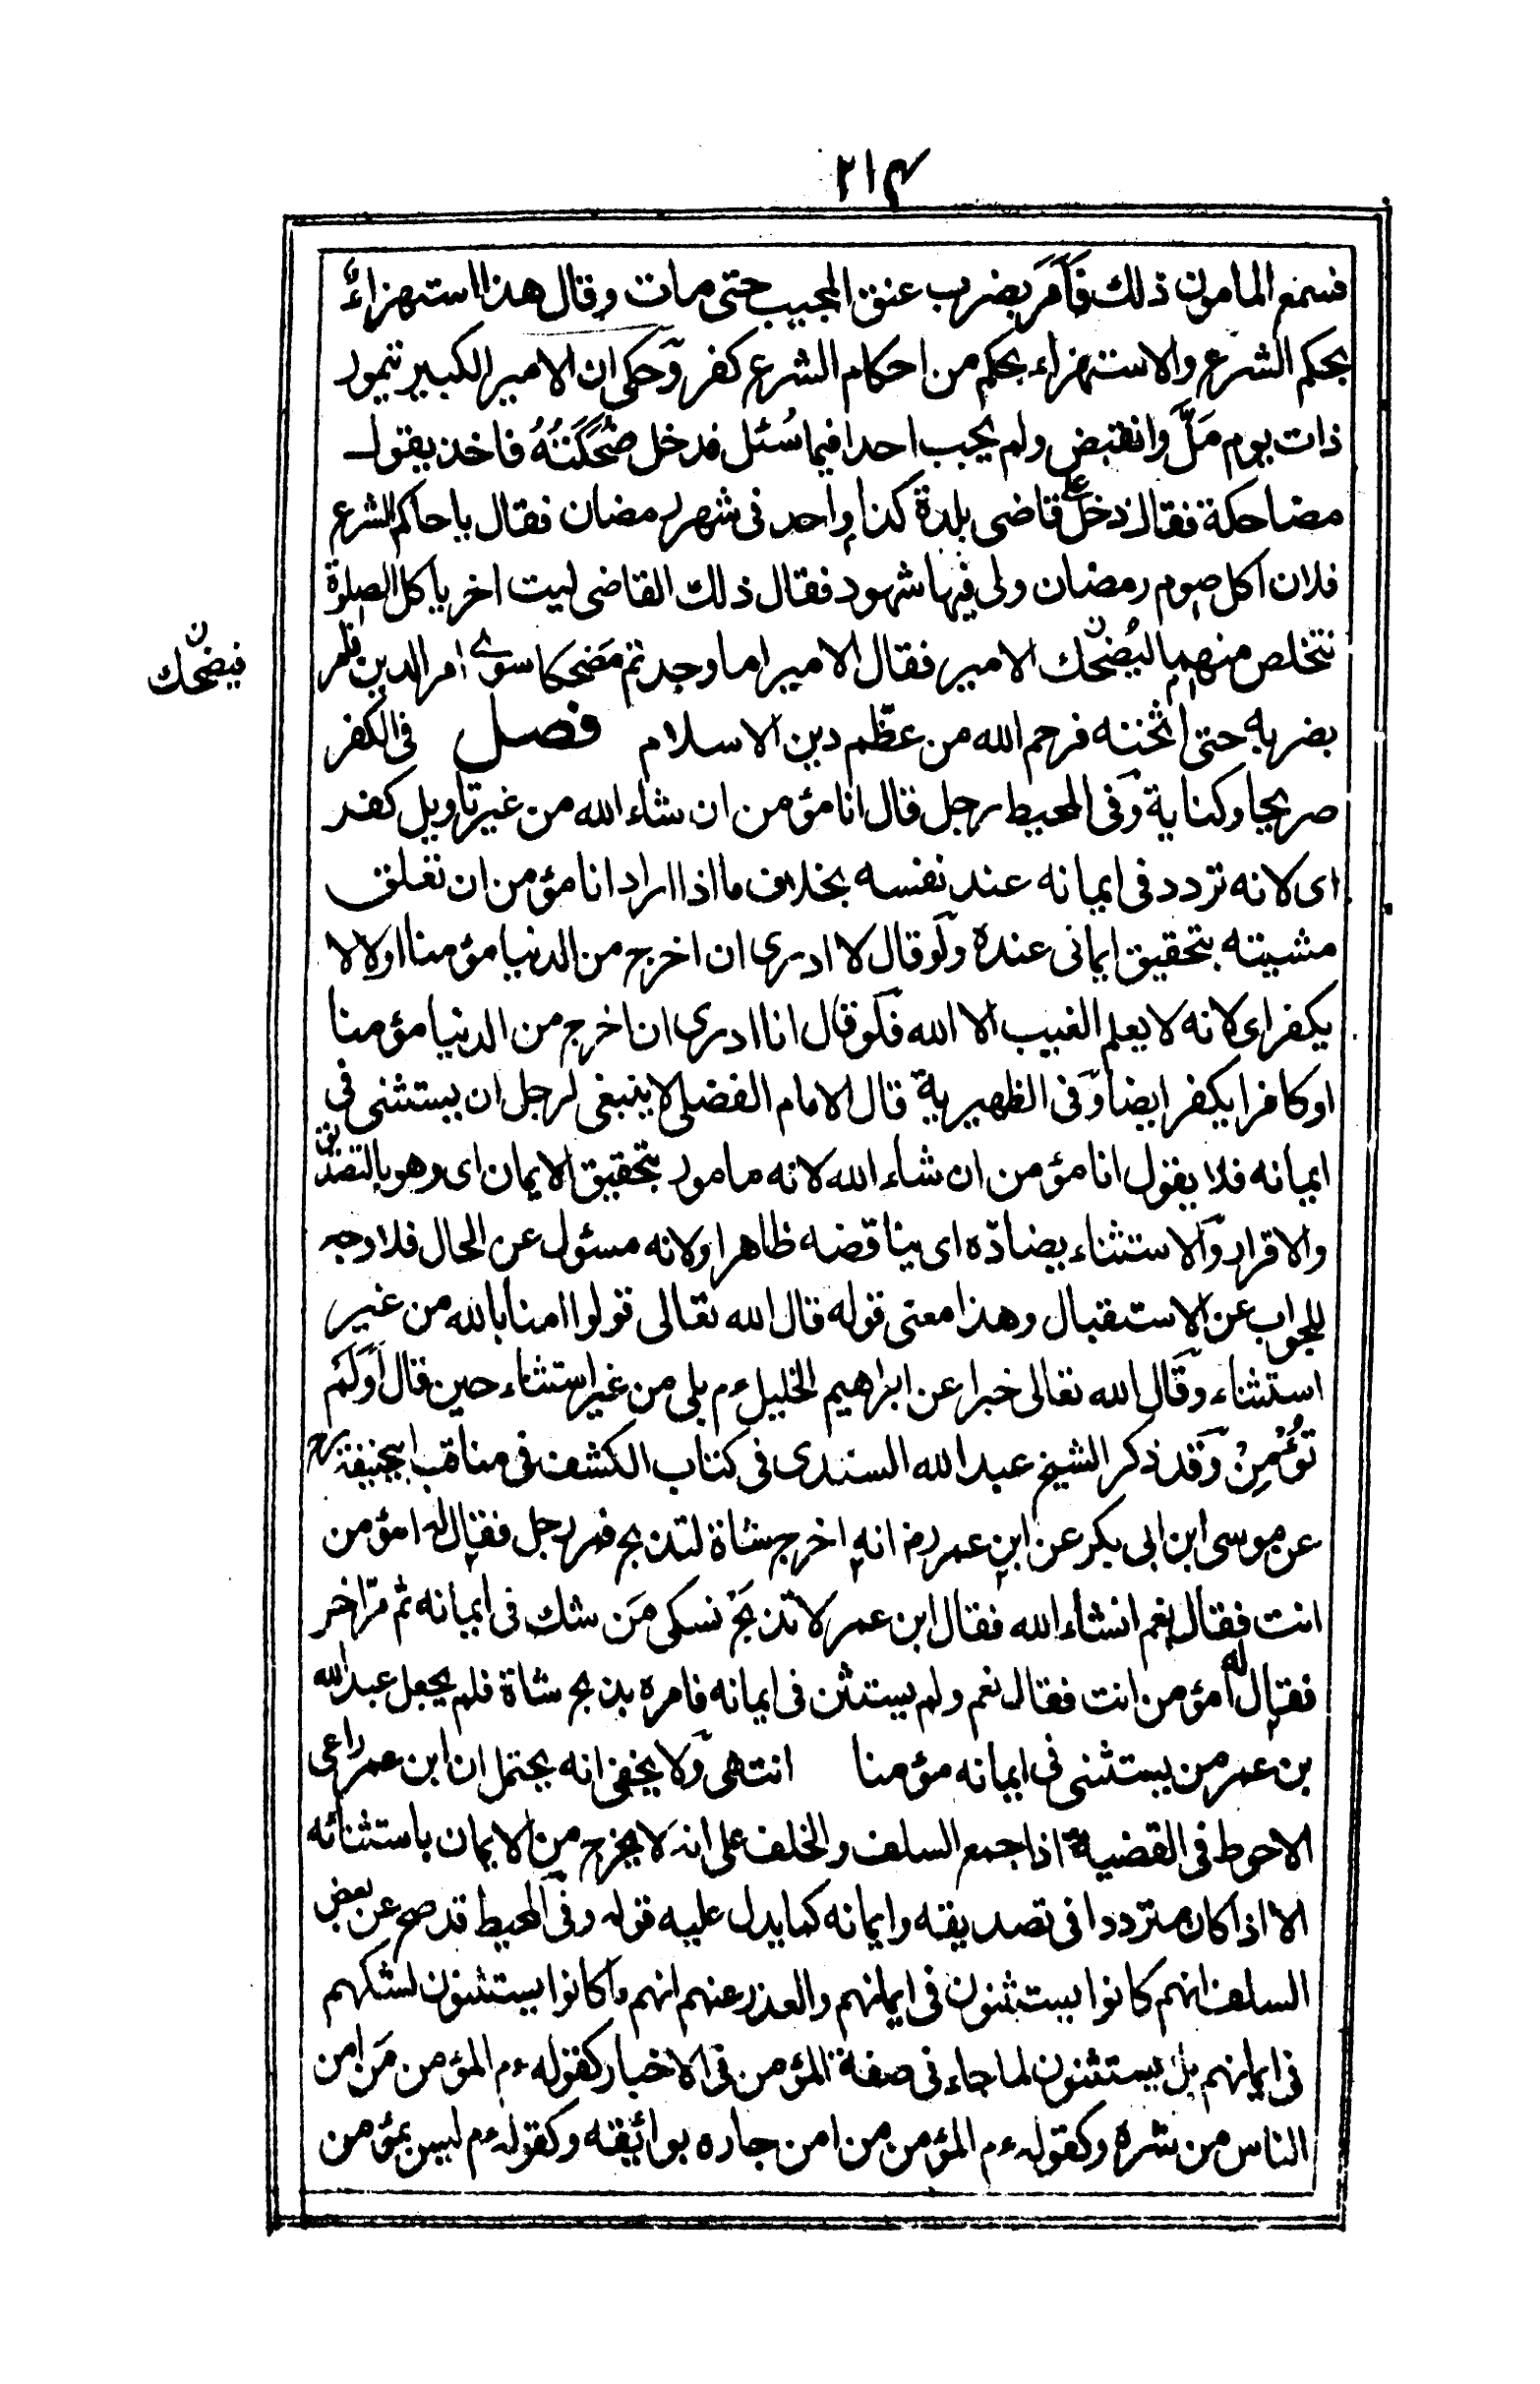 ٢١٤
فسمع المامون ذلك فَأَمَرَ بضرب عنق المجيب حتى مات وقال هذا استهزاءٌ
بحكم الشرع والاستهزاء بحكم من احكام الشرع كفر وحكى ان الامير الكبير تيمور
ذات يوم مَلَّ وانقبض ولم يجب احدا فيما سُئل فدخل ضُحَكَتُهُ فاخذ يقول
مضاحكة فقال دخل على قاضى بلدة كذا واحد فى شهر رمضان فقال يا حاكم الشرع
فلان اكل صوم رمضان ولى فيها شهود فقال ذلك القاضى ليت اخر ياكل الصلوة
نتخلص منهما ليُضحك الامير فقال الامير اما وجدتم مَضحكا سوى امر الدين فامر
فيضحك ن
بضربه حتى اثخنه فرحم الله من عظّم دين الاسلام فصل فى الكفر
صريحا وكناية وفى المحيط رجل قال انا مؤمن ان شاء الله من غير تاويل كفر
اى لانه تردد فى ايمانه عند نفسه بخلاف ما اذا اراد انا مؤمن ان تعلق
مشيته بتحقيق ايمانى عنده ولو قال لا ادرى ان اخرج من الدنيا مؤمنا اولا لا
يكفر اى لانه لا يعلم الغيب الا الله فلو قال انا ادرى ان اخرج من الدنيا مؤمنا
او كافرا يكفر ايضا وفى الظهيرية قال الامام الفضلى لا ينبغى لرجل ان يستثنى فى
ايمانه فلا يقول انا مؤمن ان شاء الله لانه مامور بتحقيق الايمان اى وهو بالتصديق
والاقرار والاستثناء يضادّه اى يناقضه ظاهرا ولانه مسئول عن الحال فلا وجه
للجواب عن الاستقبال وهذا معنى قوله قال الله تعالى قولوا امنا بالله من غير
استثناء وقال الله تعالى خبرا عن ابراهيم الخليل ءم بلى من غير استثناء حين قال أَوَلَمْ
تُؤْمِنْ وقد ذكر الشيخ عبد الله السندى فى كتاب الكشف فى مناقب ابيحنيفة رح
عن موسى ابن ابى بكر عن ابن عمر رض انه اخرج شاة لتذبح فمر رجل فقال له امؤمن
انت فقال نعم انشاء الله فقال ابن عمر لا تذبحَ نسكى مَن شك فى ايمانه ثم مرّ اخر
فقال له أمؤمن انت فقال نعم ولم يستثن فى ايمانه فامره بذبح شاة فلم يجعل عبد الله
بن عمر من يستثنى فى ايمانه مؤمنا انتهى ولا يخفى انه يحتمل ان ابن عمر راعى
الاحوط فى القضية اذا جمع السلف والخلف على انه لا يخرج من الايمان باستثنائه
الا اذا كان مترددا فى تصديقه وايمانه كما يدل عليه قوله وفى المحيط قد صح عن بعض
السلف انهم كانوا يستثنون فى ايمانهم والعذر عنهم انهم ما كانوا يستثنون لشكهم
فى ايمانهم بل يستثنون لما جاء فى صفة المؤمن فى الاخبار كقوله ءم المؤمن مَن امن
الناس من شره وكقوله ءم المؤمن من امن جاره بوائقه وكقوله ءم ليس بمؤمن